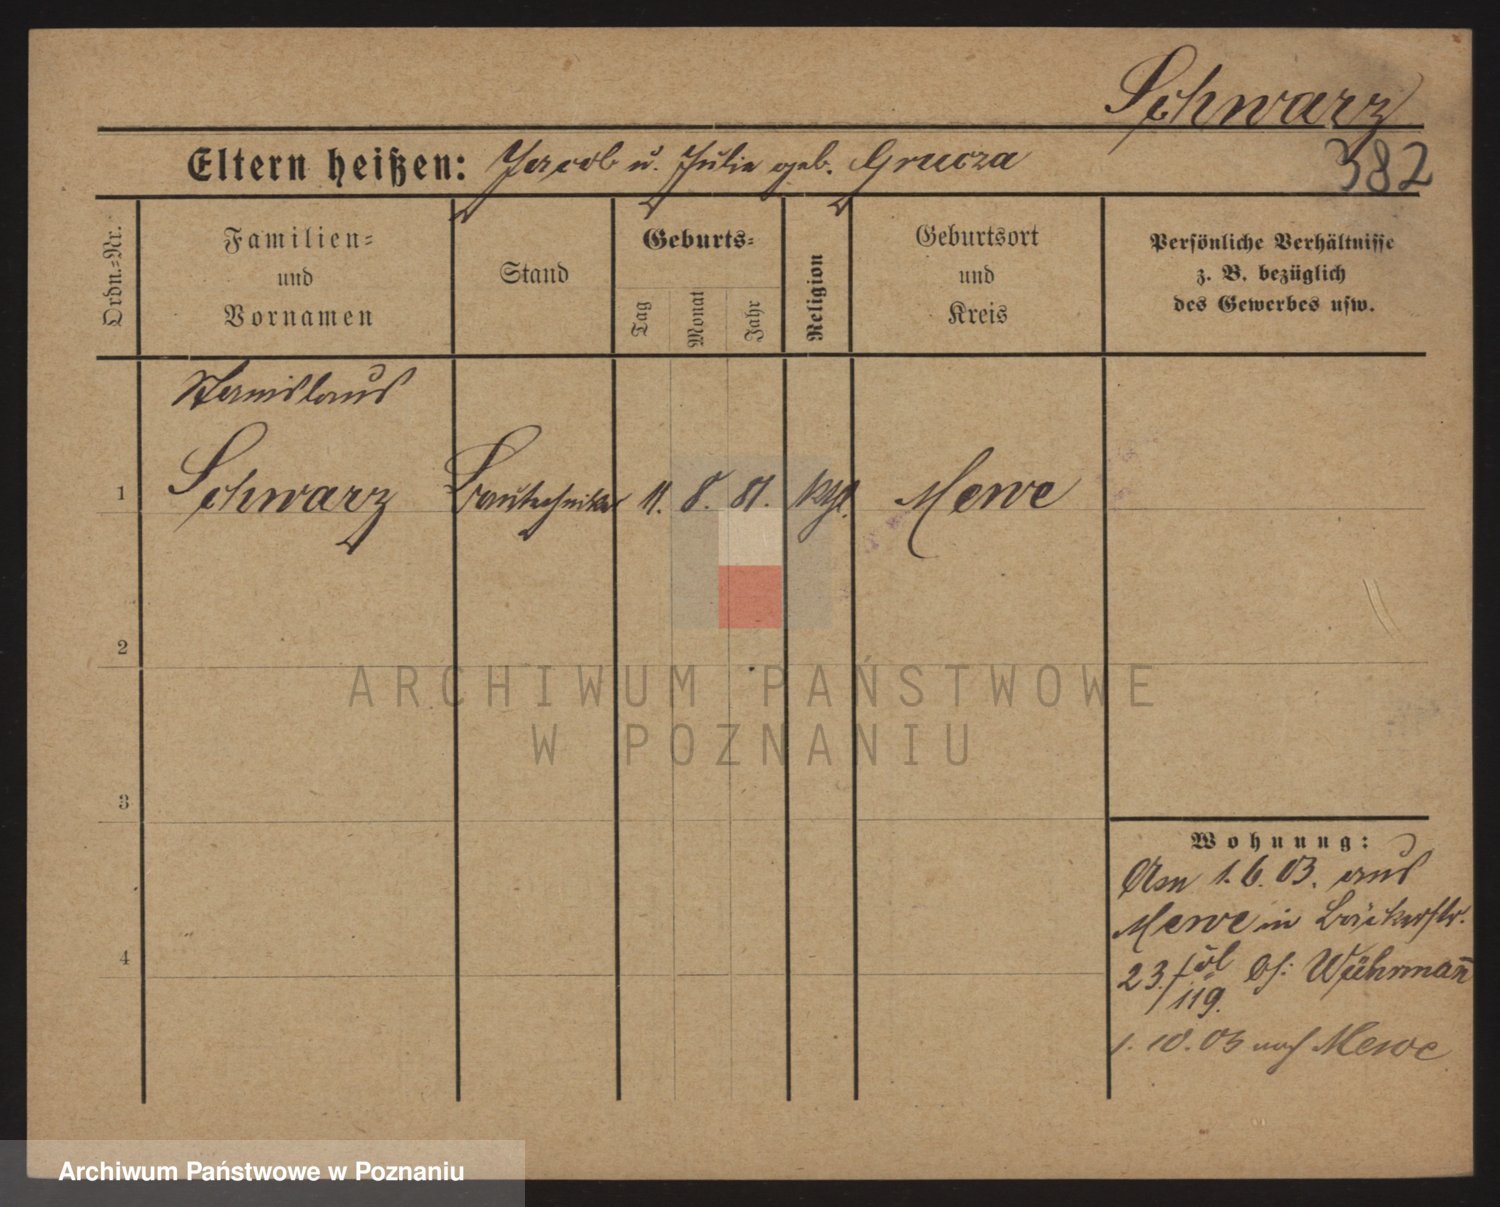 Schwarz
Eltern heißen: Jacob u. Julie geb. Grucza
382
Ordn.-Nr.
Familien-
und
Vornamen
Stand
Geburts-
Tag
Monat
Jahr
Religion
Geburtsort
und
Kreis
Persönliche Verhältnisse
z. B. bezüglich
des Gewerbes usw.
Stanislaus
1 Schwarz Bautechniker 11. 8. 81. kth. Mewe
2
3
4
ARCHIWUM PAŃSTWOWE
W POZNANIU
Wohnung:
Am 1.6.03. aus
Mewe in Bäckerstr.
23. 119. bei Wührmann
1.10.03 nach Mewe
Archiwum Państwowe w Poznaniu